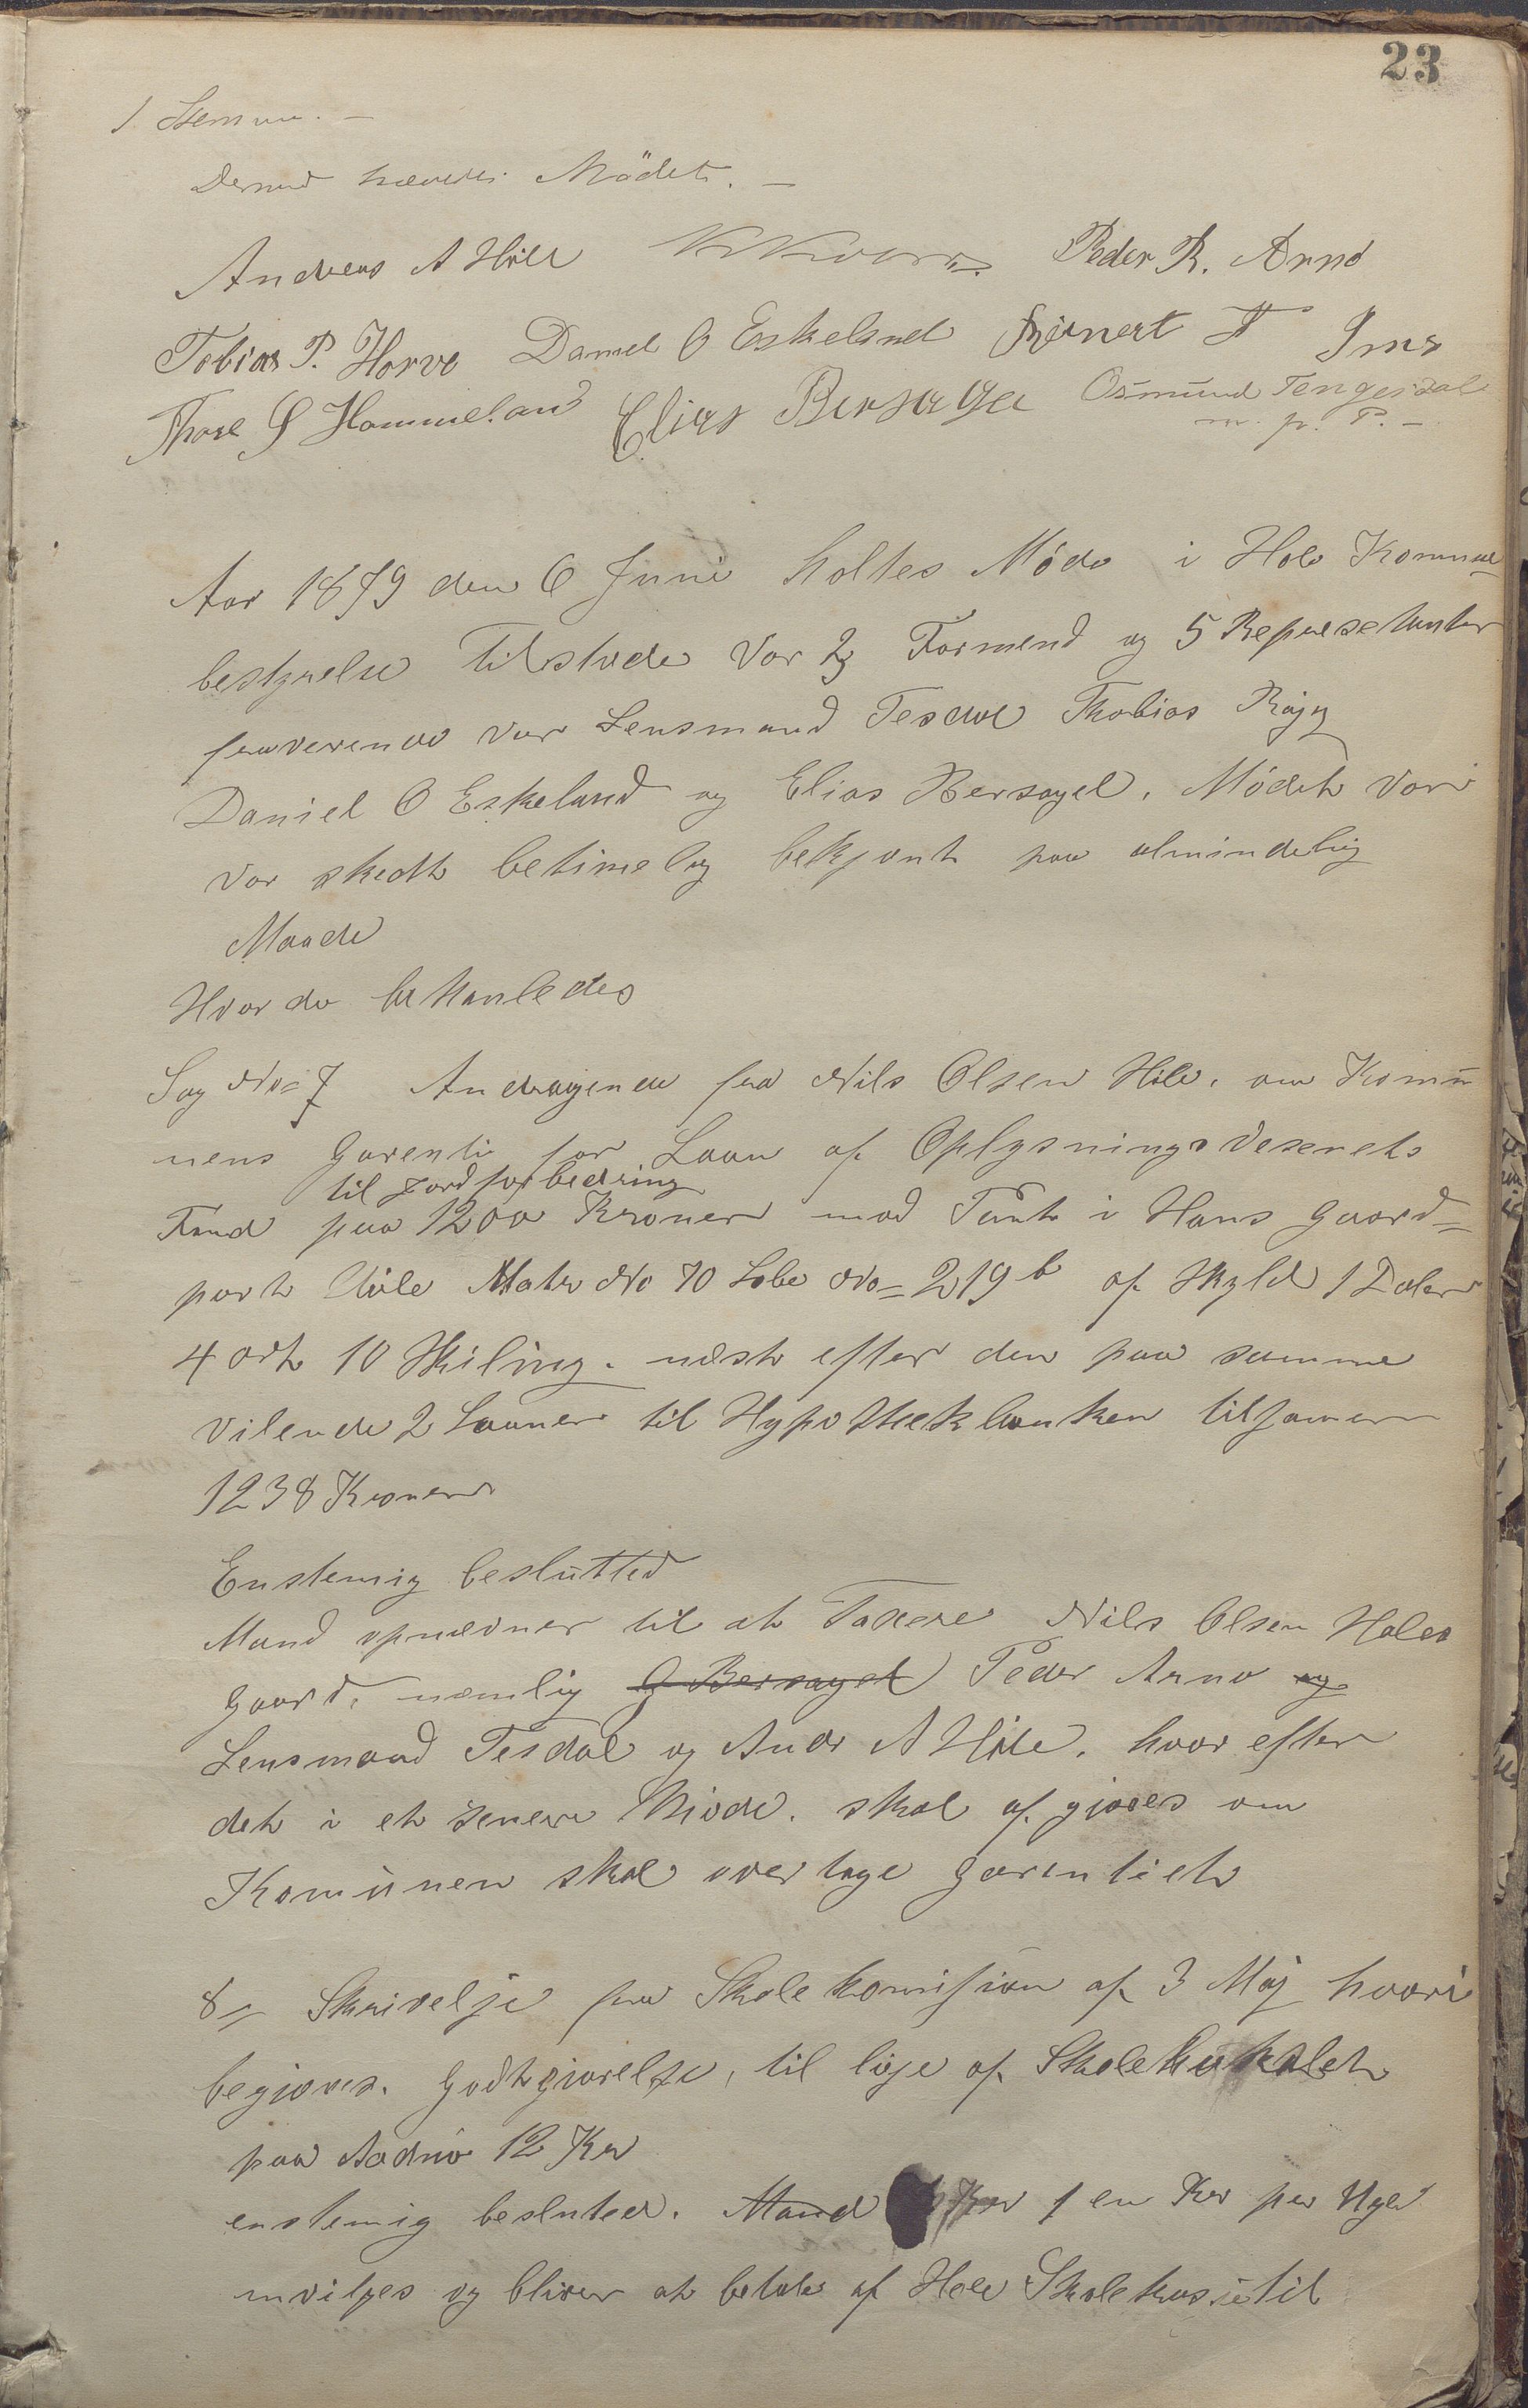 23
1 Stemme. —
Dermed hævedes Mödet. —
Andreas A Hôle Peder R. Arnö
Tobias P. Horve Daniel O Eskeland Reinert T Ims
Thore S Hommeland Elias Bersagel Osmund Tengesdal
m. p. P. —
Aar 1879 den 6 Juni holtes Möde i Hole Kommune
bestyrelse Tilstede Var 3 Formend og 5 Represetanter
fraverende var Lensmand Tesdal Thobias Røgg
Daniel O Eskeland og Elias Bersagel. Mödet Var
Var skedt betimelig bekjent paa almindelig
Maade
Hvor da behanledes
Sag No= 7 Andragende fra Nils Olsen Hôle. om Komü
nens Garenti for Laan af Oplysnings Vesenets
til Jordforbedring
Fond paa 1200 Kroner mod Pant i Hans Gaard=
part Hôle Matr No 70 Lobe No= 219 b af Skyld 1 Daler
4 ort 10 Skiling. nest efter den paa samme
vilende 2 Laaner til Hypothekbanken tilsamen
1238 Kroner
Enstemig beslutted
Mand opnevner til at Taxere Nils Olsen Holes
Gaard. nemlig G Bersagel Peder Arnø og
Lensmand Tesdal og Andr A Hôle. hvor efter
det i et senere Möde. skal af gjøres om
Komünen skal over tage garentiet
8= Skrivelse fra Skolekomision af 3 Maj hvori
begjæres. Godtgjørelse, til leje af Skolelokalet
paa Aadnö 12 Kr
enstemig besluted. Mand Kr 1 en Kr per Uge
invilges og bliver at betale af Hole Skolekasse til